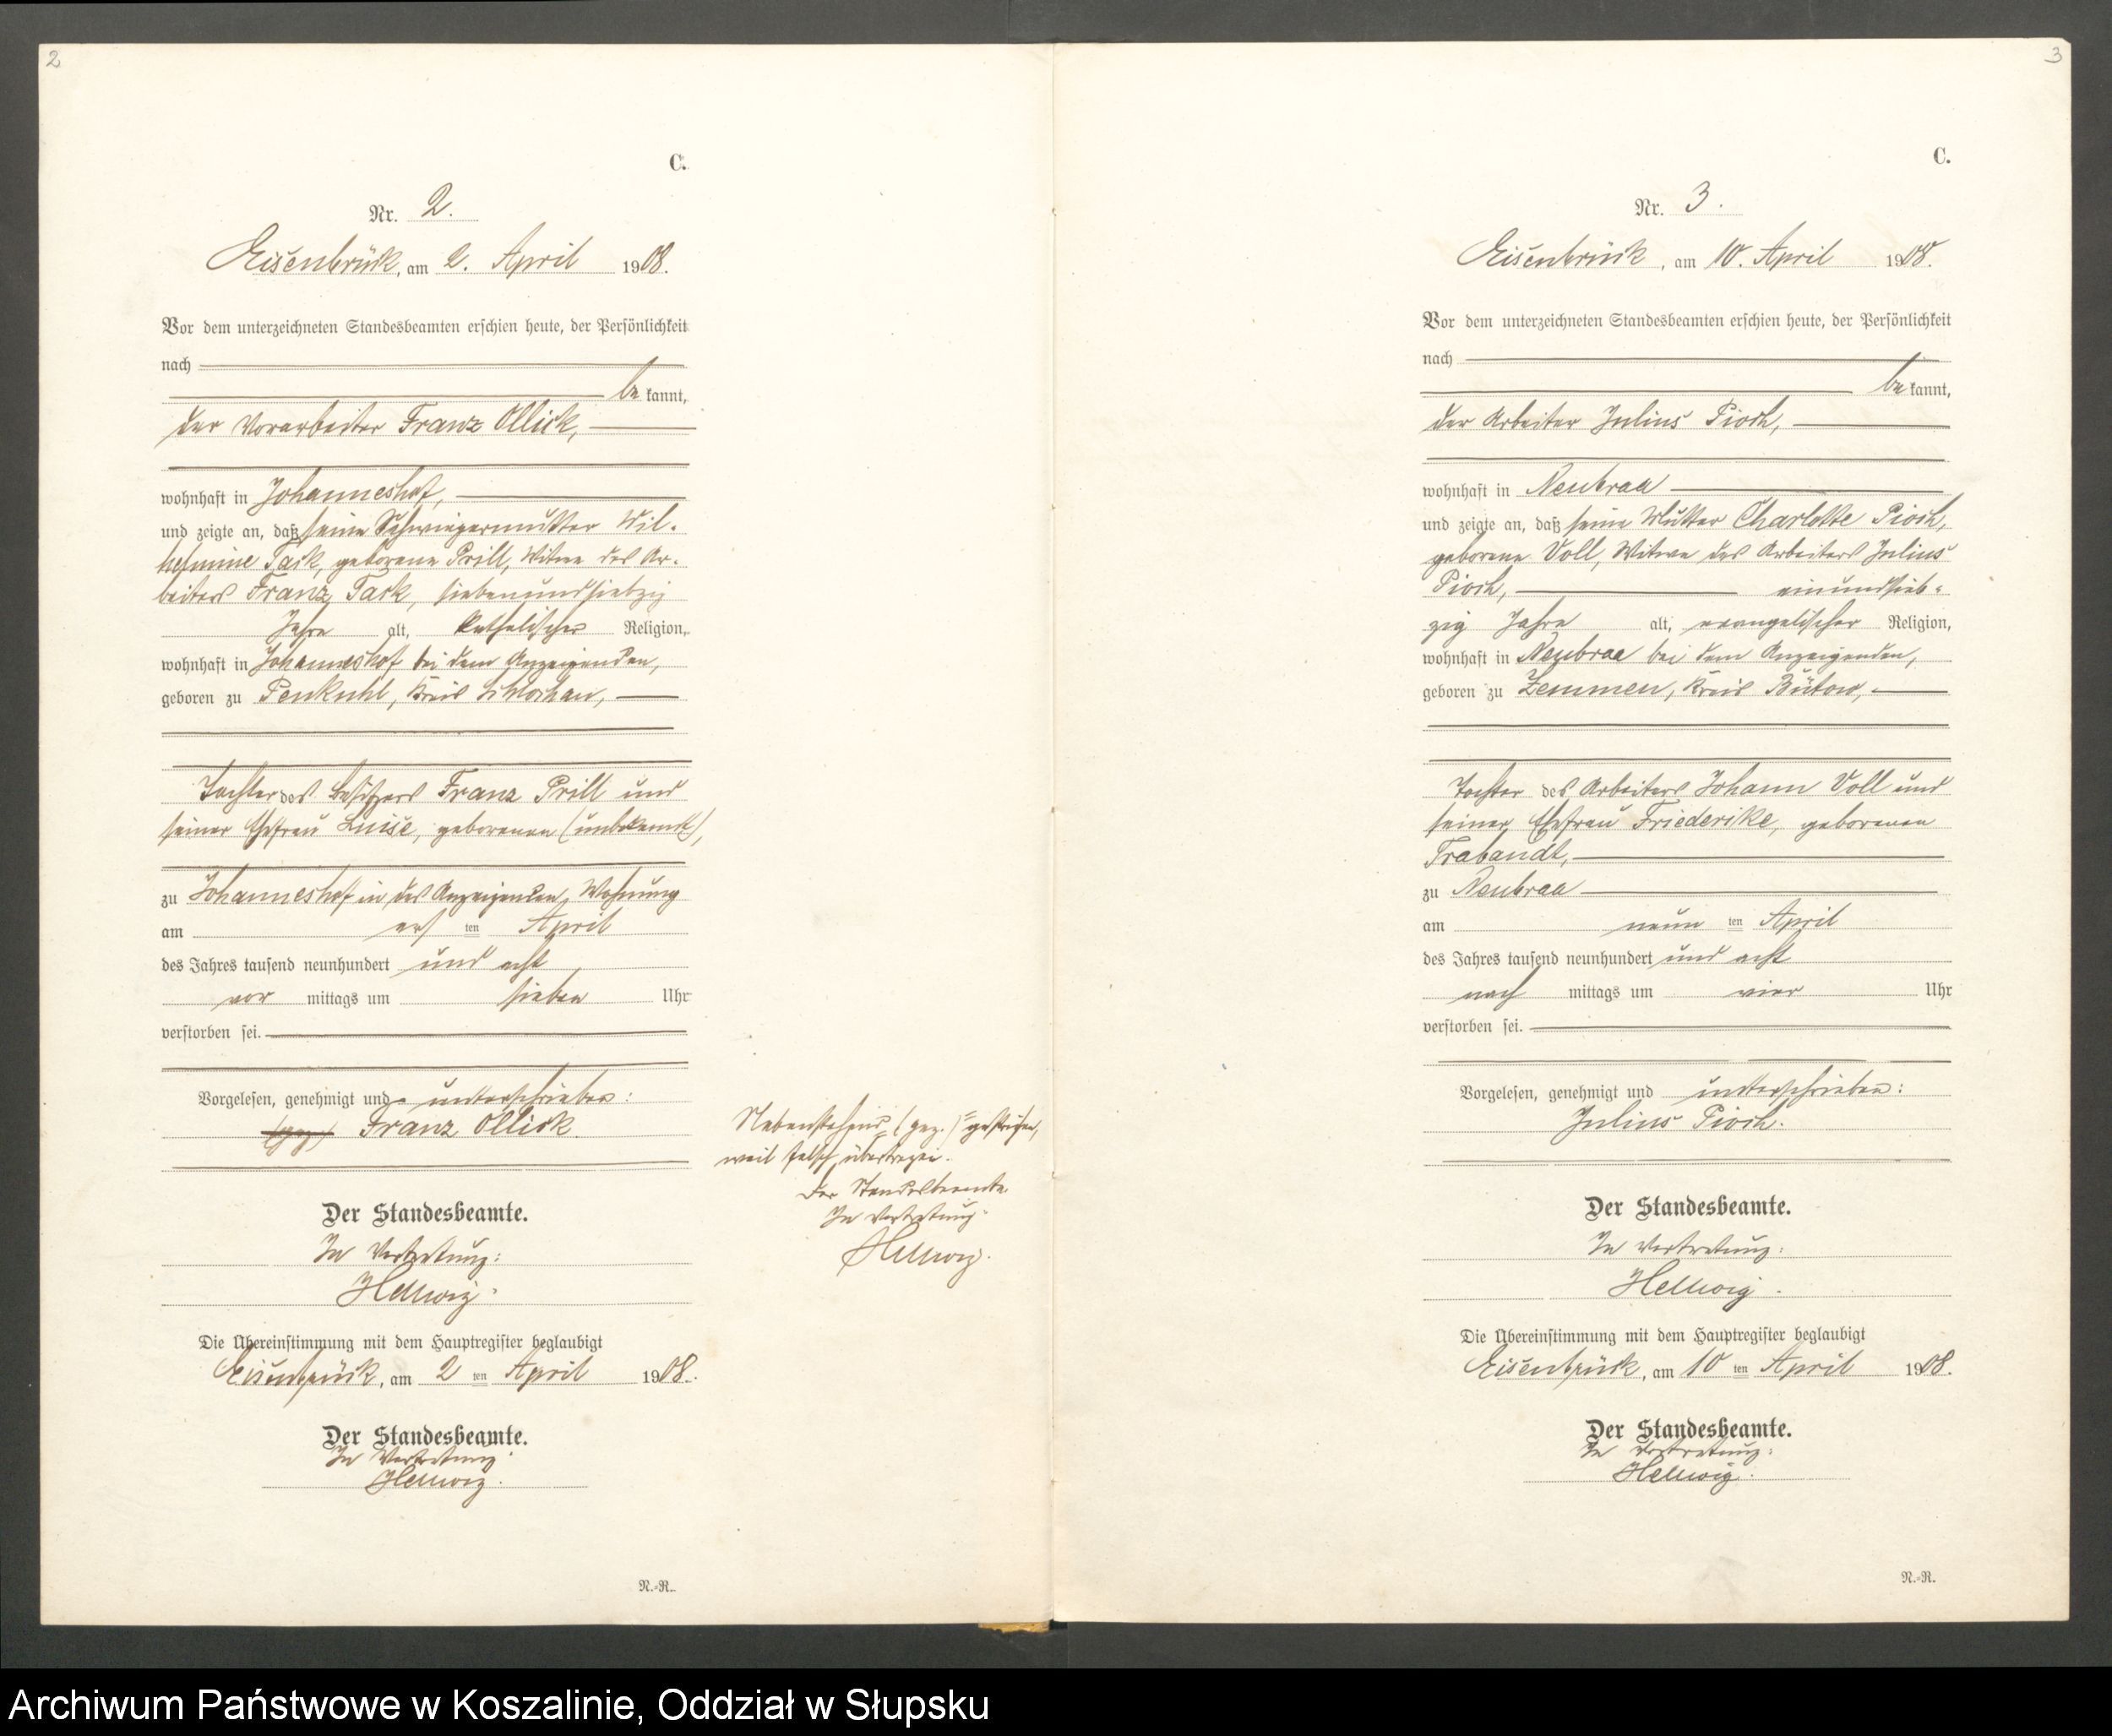 2
C.
Nr. 2.
Eisenbrück, am 2. April 1908.
Vor dem unterzeichneten Standesbeamten erschien heute, der Persönlichkeit
nach
be kannt,
der Vorarbeiter Franz Ollick,
wohnhaft in Johanneshof,
und zeigte an, daß seine Schwiegermutter Wil-
helmine Tack, geborene Prill, Witwe des Ar-
beiters Franz Tack, siebenundsiebzig
Jahre alt, katholischer Religion,
wohnhaft in Johanneshof bei dem Anzeigenden,
geboren zu Penkuhl, Kreis Schlochau,
Tochter des Besitzers Franz Prill und
seiner Ehefrau Luise, geborenen (unbekannt),
zu Johanneshof in des Anzeigenden Wohnung
am ers ten April
des Jahres tausend neunhundert und acht
vor mittags um sieben Uhr
verstorben sei.
Vorgelesen, genehmigt und unterschrieben:
(gez) Franz Ollick
Der Standesbeamte.
In Vertretung:
Hellwig.
Die Übereinstimmung mit dem Hauptregister beglaubigt
Eisenbrück, am 2 ten April 1908.
Der Standesbeamte.
In Vertretung
Hellwig.
N.-R.
Nebenstehend "(gez.)" gestrichen,
weil falsch übertragen.
Der Standesbeamte
In Vertretung:
Hellwig.
3
C.
Nr. 3.
Eisenbrück, am 10. April 1908.
Vor dem unterzeichneten Standesbeamten erschien heute, der Persönlichkeit
nach
be kannt,
der Arbeiter Julius Pioch,
wohnhaft in Neubraa
und zeigte an, daß seine Mutter Charlotte Pioch,
geborene Voll, Witwe des Arbeiters Julius
Pioch, einundsieb-
zig Jahre alt, evangelischer Religion,
wohnhaft in Neubraa bei dem Anzeigenden,
geboren zu Zemmen, Kreis Bütow,
Tochter des Arbeiters Johann Voll und
seiner Ehefrau Friederike, geborenen
Trabandt,
zu Neubraa
am neun ten April
des Jahres tausend neunhundert und acht
nach mittags um vier Uhr
verstorben sei.
Vorgelesen, genehmigt und unterschrieben:
Julius Pioch.
Der Standesbeamte.
In Vertretung:
Hellwig.
Die Übereinstimmung mit dem Hauptregister beglaubigt
Eisenbrück, am 10 ten April 1908.
Der Standesbeamte.
In Vertretung:
Hellwig.
N.-R.
Archiwum Państwowe w Koszalinie, Oddział w Słupsku